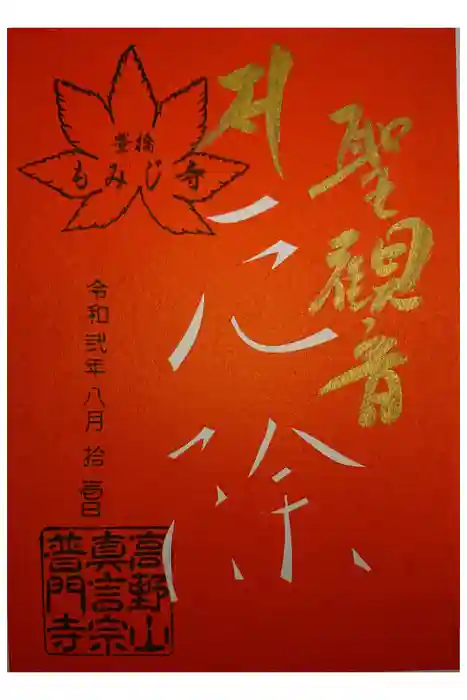 聖観音
厄除
豊橋
もみじ寺
令和弐年八月拾日
高野山
真言宗
普門寺